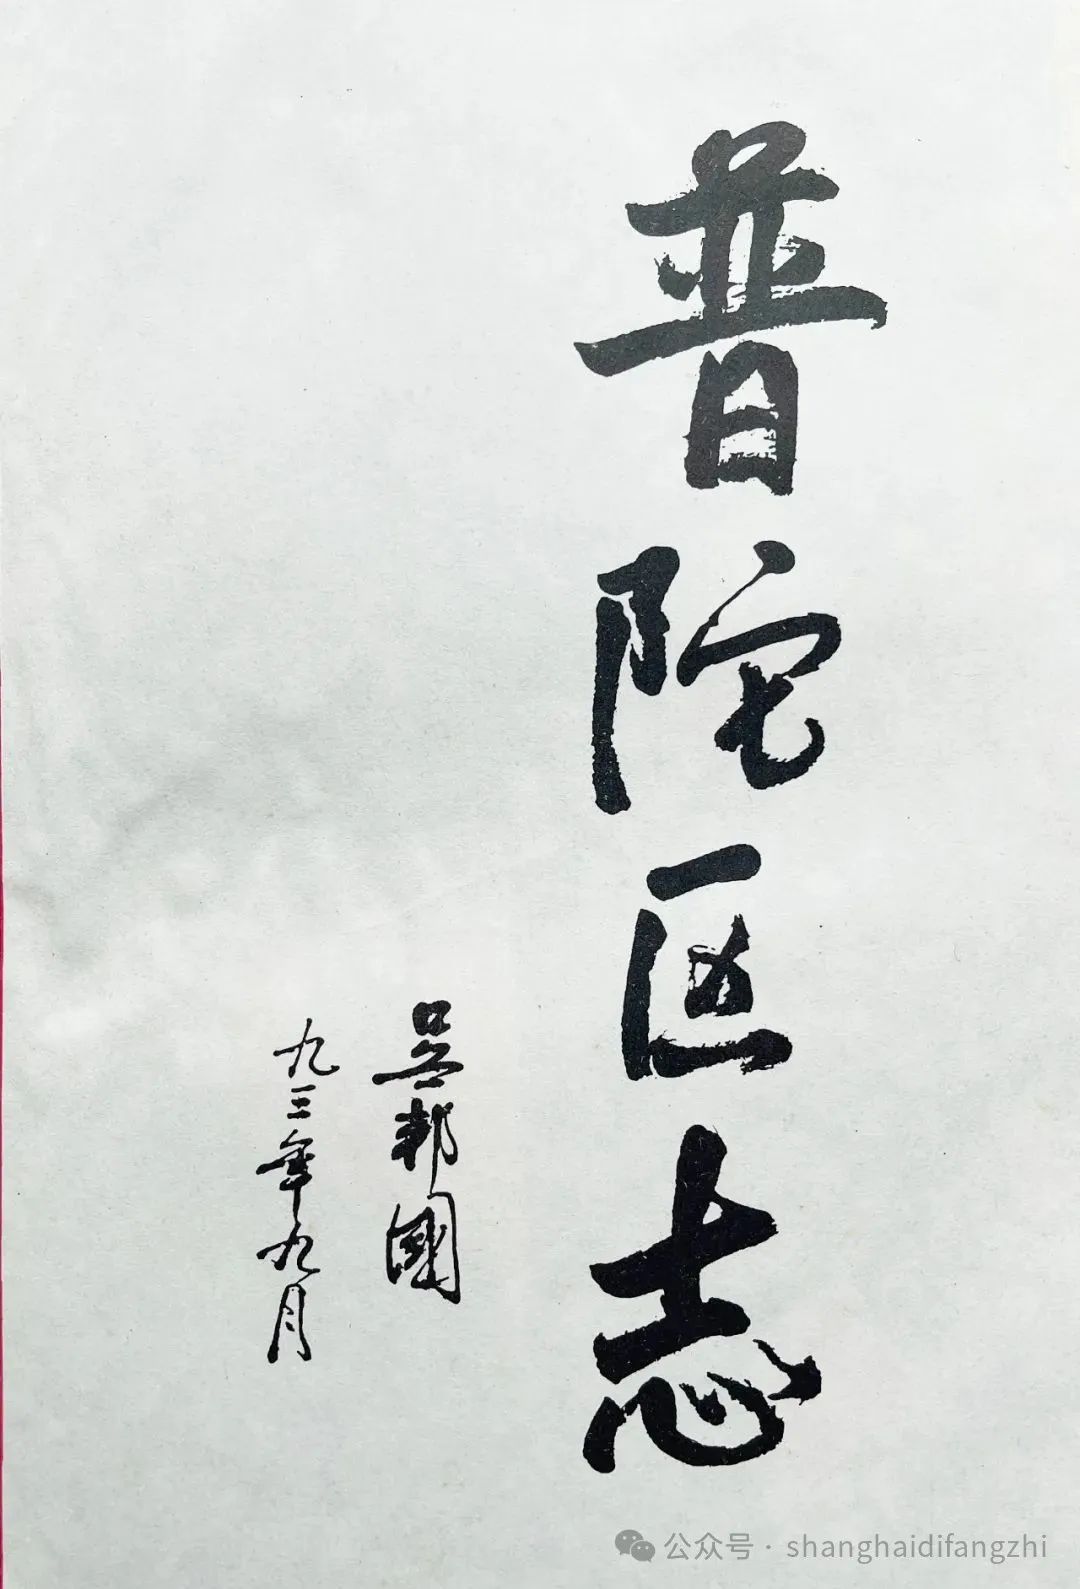 普陀区志
吴邦國
九三年九月
公众号·shanghaidifangzhi